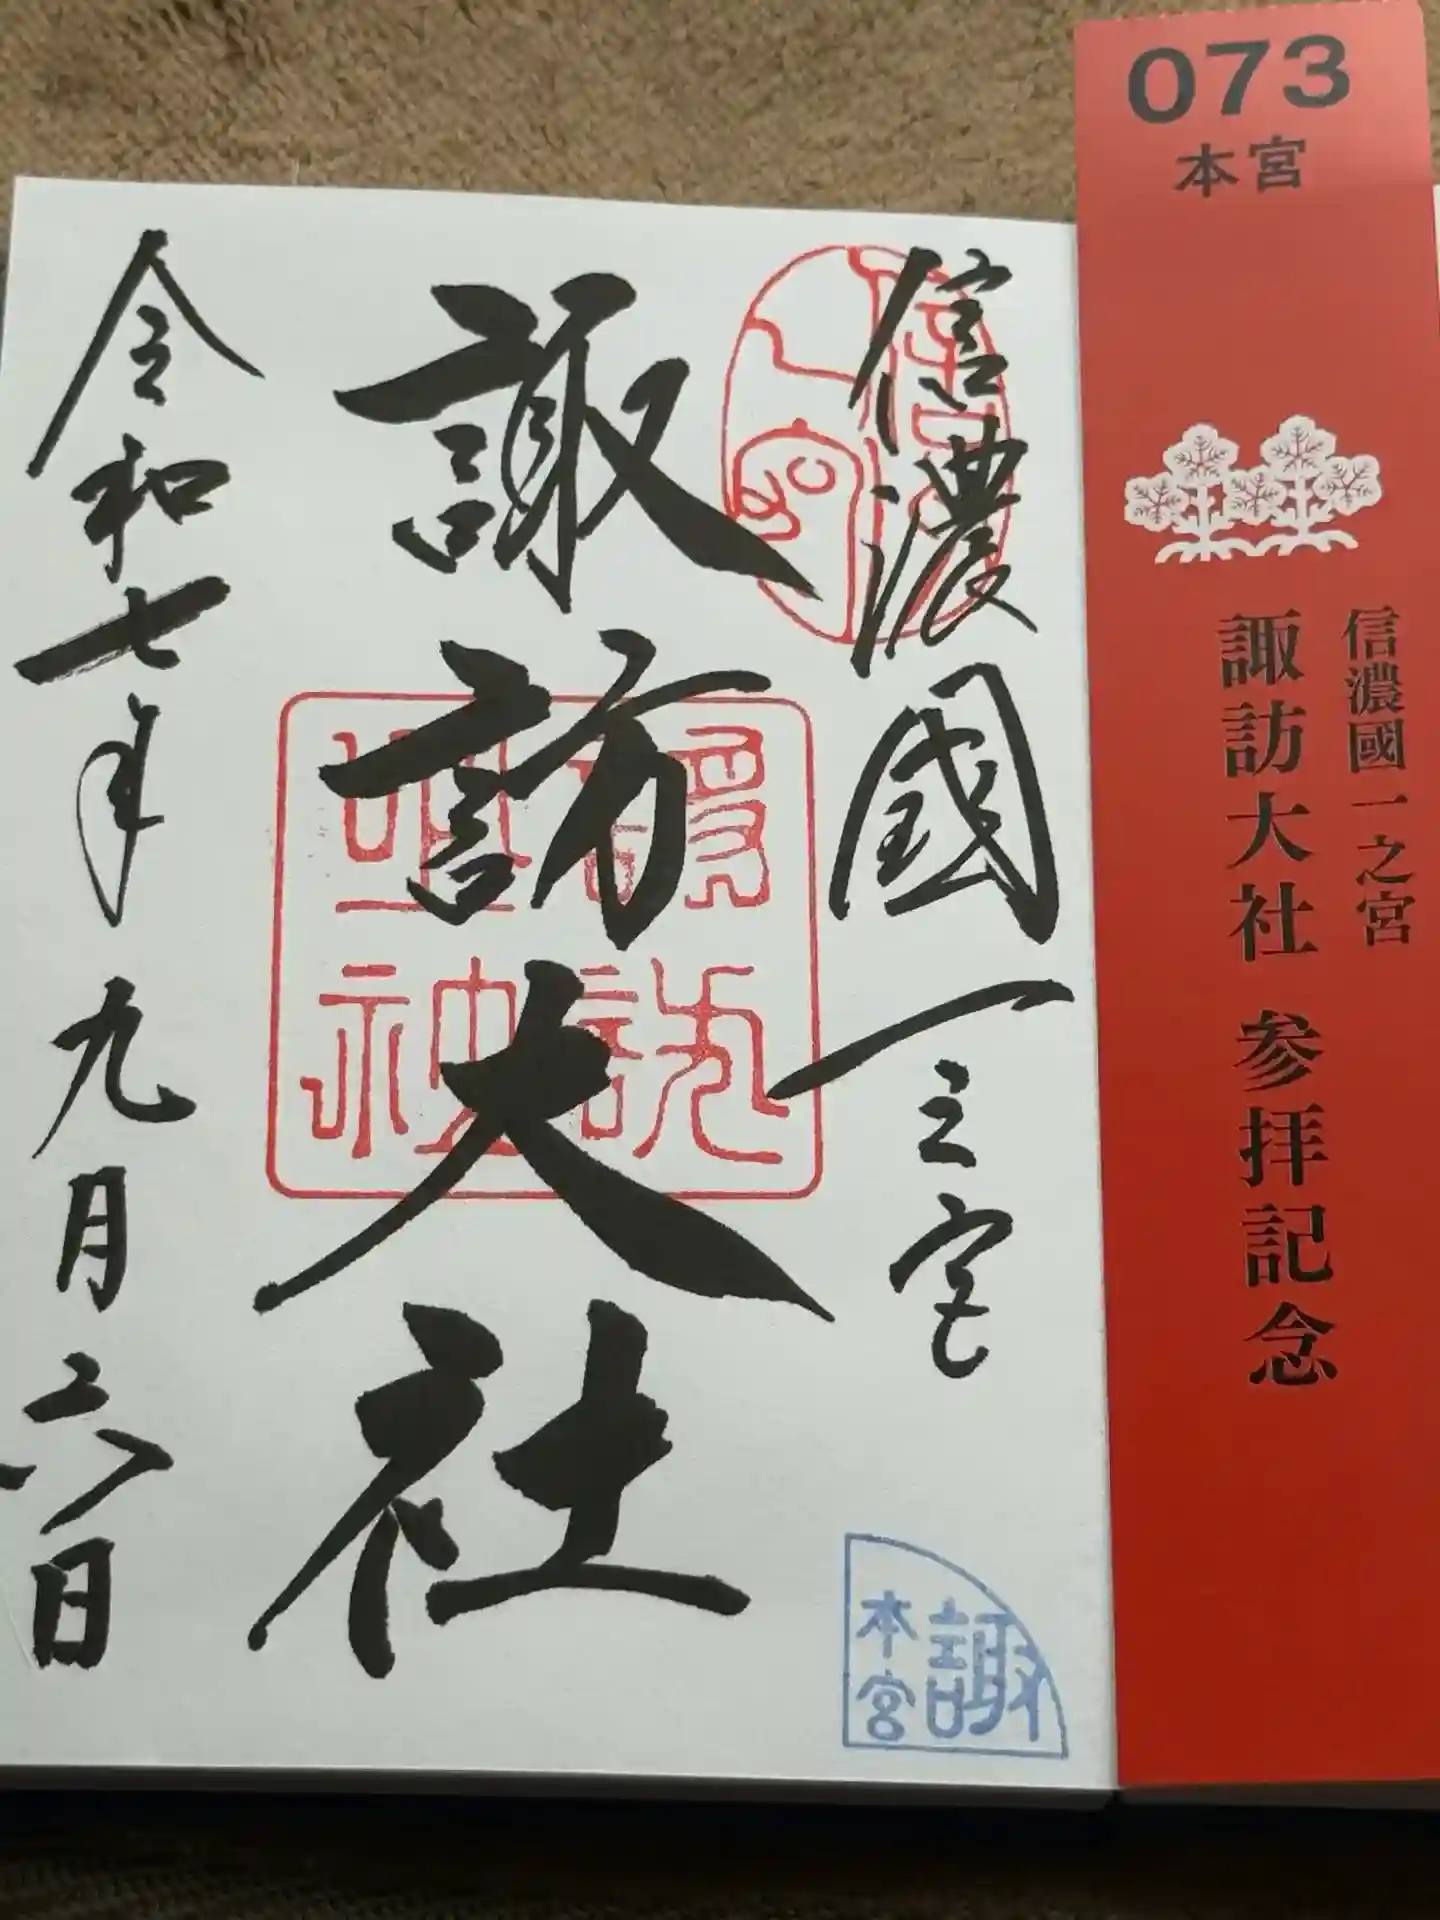 073
本宮
信濃國一之宮
諏訪大社 参拝記念
信濃國一之宮
諏訪大社
令和七年九月六日
諏
本宮